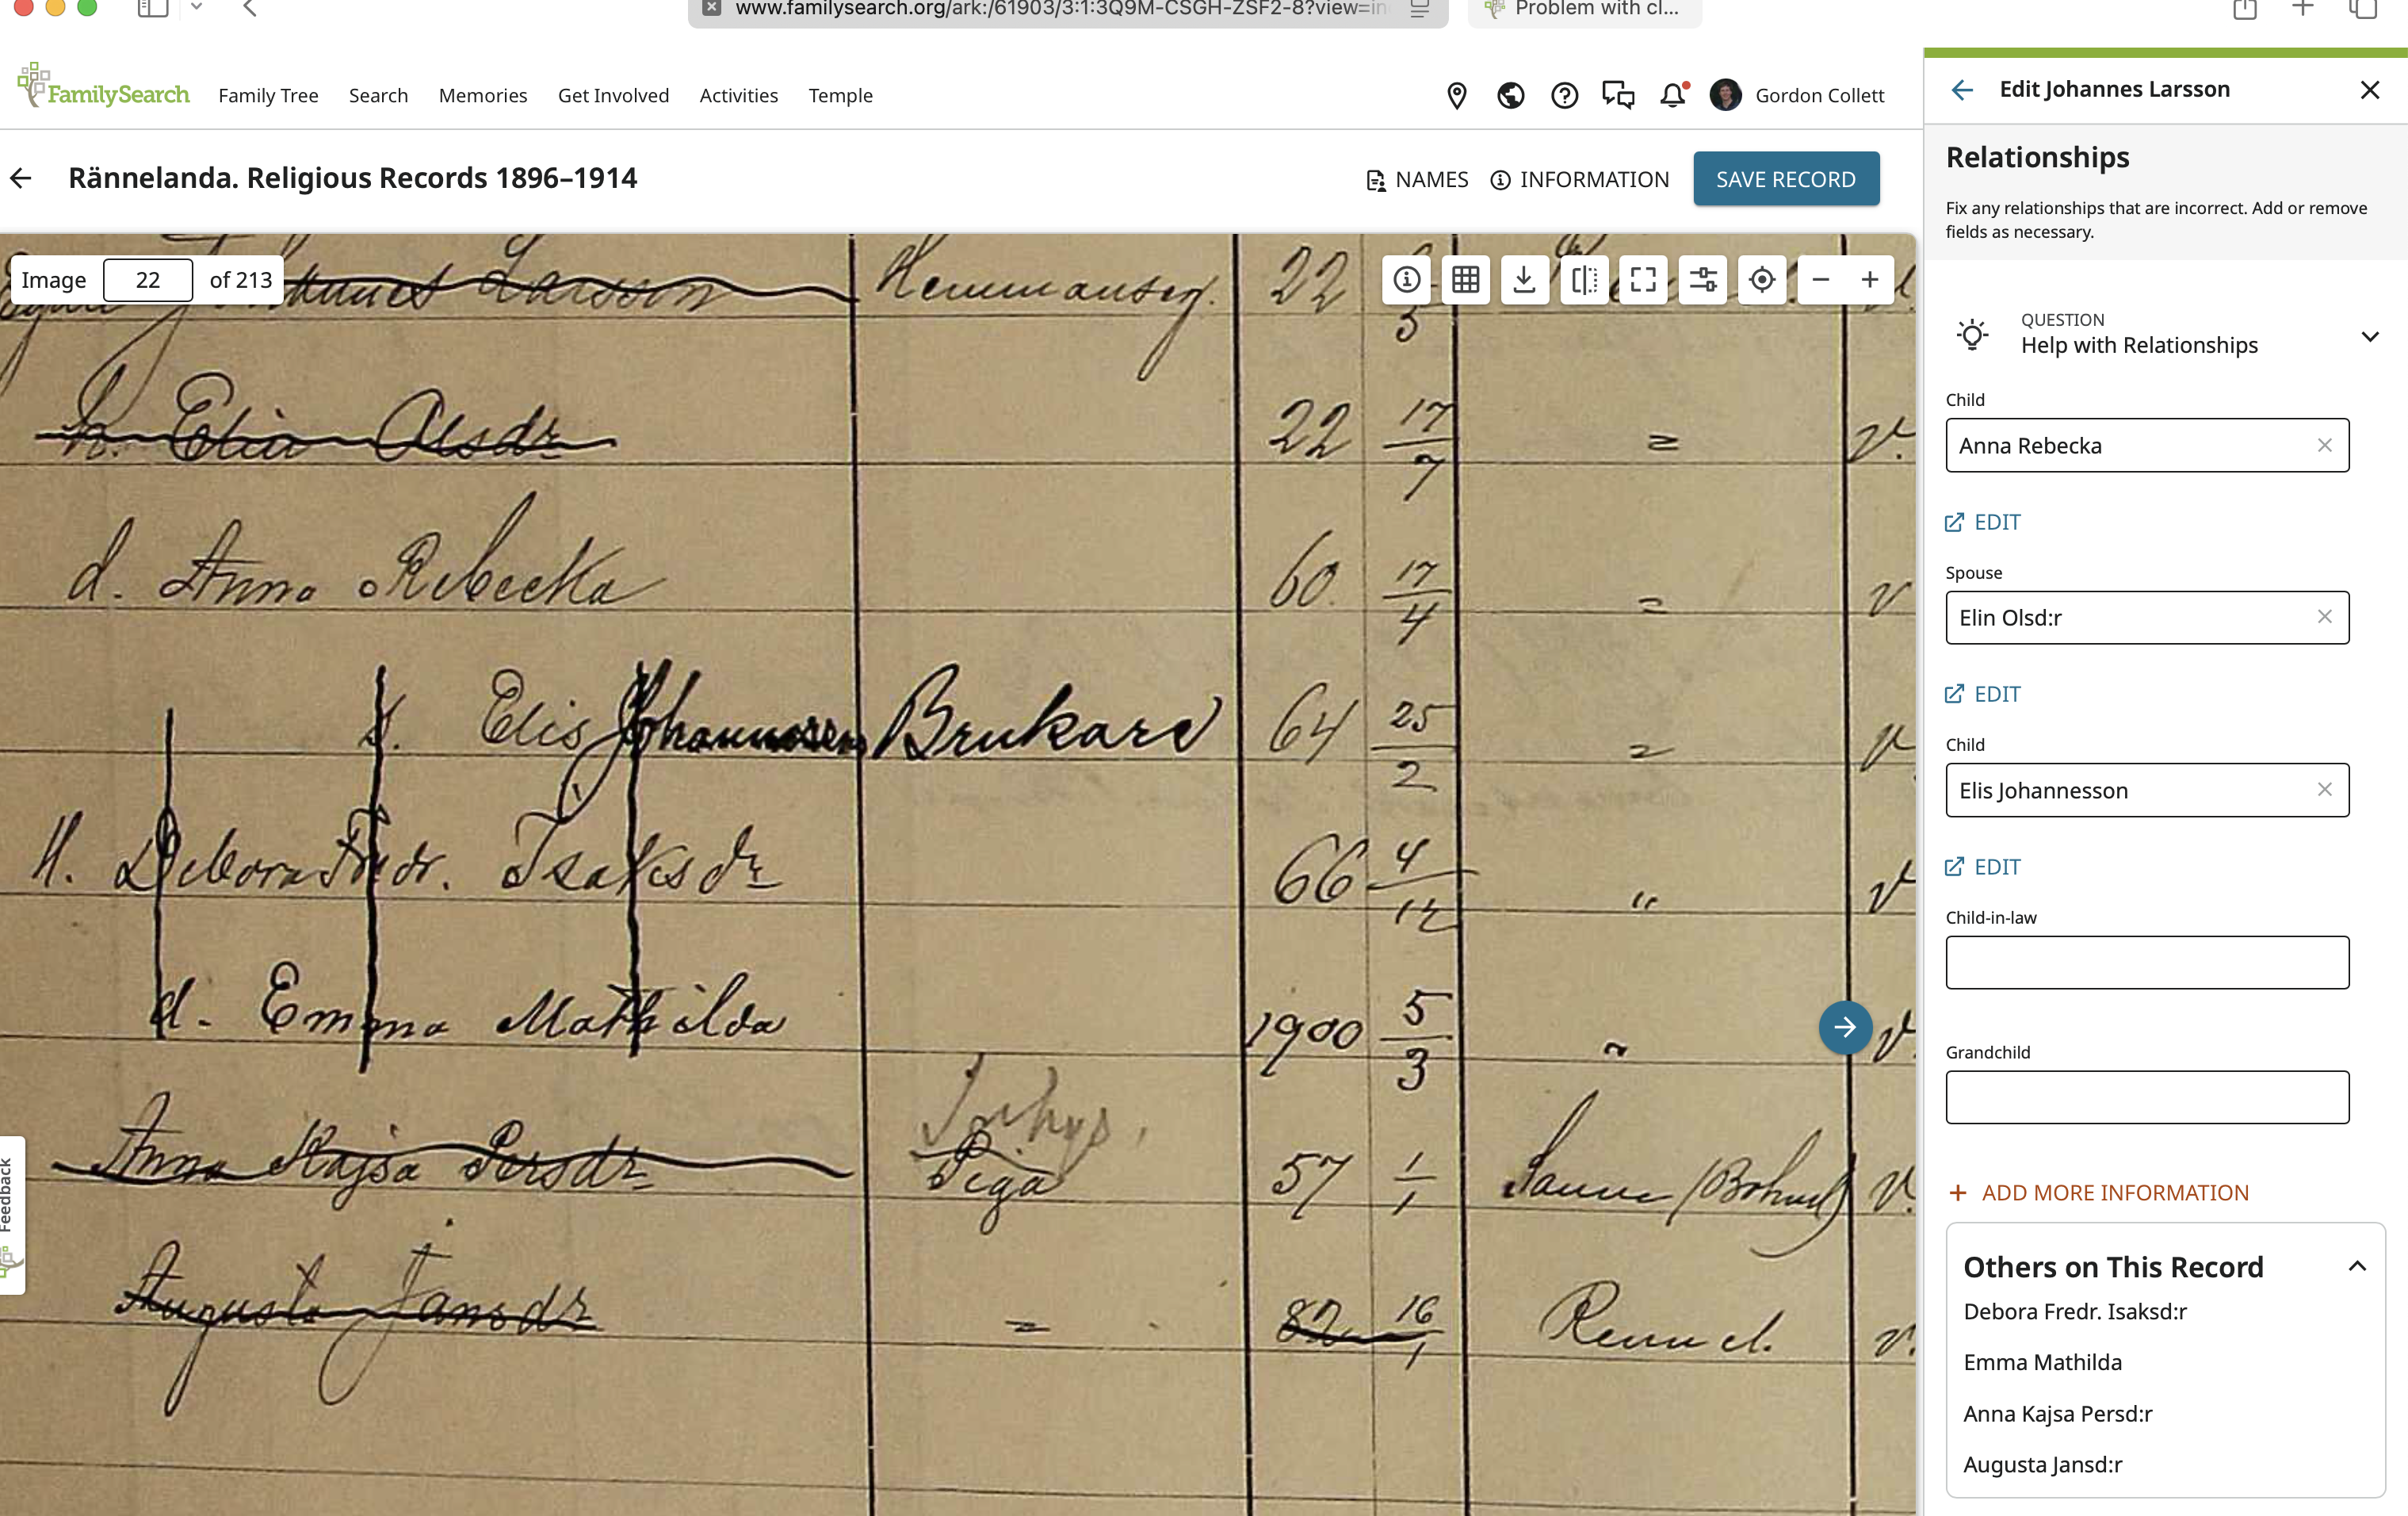 www.familysearch.org/ark:/61903/3:1:3Q9M-CSGH-ZSF2-8?view=in
Problem with cl...
FamilySearch
Family Tree
Search
Memories
Get Involved
Activities
Temple
Gordon Collett
Rännelanda. Religious Records 1896–1914
NAMES
INFORMATION
SAVE RECORD
Image 22 of 213
Johannes Larsson Hemmanseg. 22 3
h. Elin Olsdr 22 17/7 = v.
d. Anna Rebecka 60. 17/4 = v
s. Elis Johannesson Brukare 64 25/2 = v
H. Debora Fredr. Isaksdr 66 4/12 " v
d. Emma Mathilda 1900 5/3 " v.
Inhys,
Anna Kajsa Persdr Piga 57 1/1 Sanne (Bohusl) v.
Augusta Jansdr = 82 16/1 Rennel. v.
Feedback
Edit Johannes Larsson
Relationships
Fix any relationships that are incorrect. Add or remove
fields as necessary.
QUESTION
Help with Relationships
Child
Anna Rebecka
EDIT
Spouse
Elin Olsd:r
EDIT
Child
Elis Johannesson
EDIT
Child-in-law
Grandchild
+ ADD MORE INFORMATION
Others on This Record
Debora Fredr. Isaksd:r
Emma Mathilda
Anna Kajsa Persd:r
Augusta Jansd:r